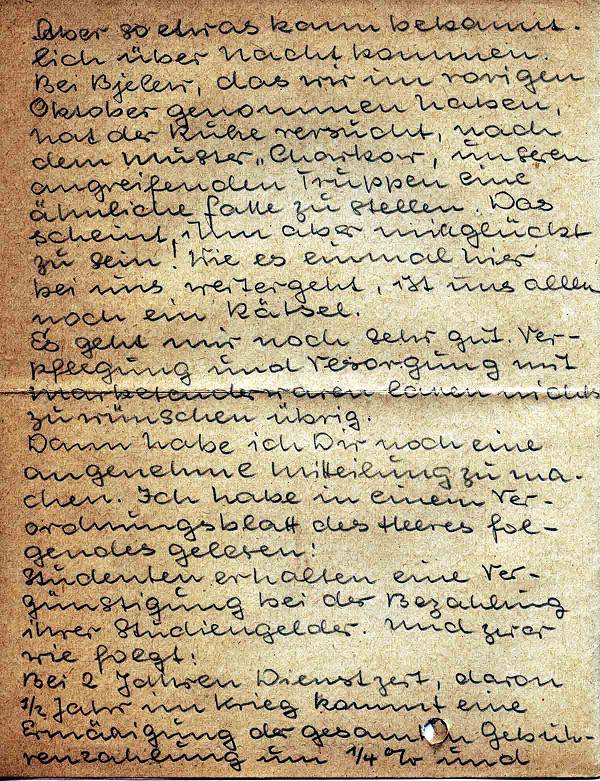 Aber so etwas kann bekannt-
lich über Nacht kommen.
Bei Bjelew, das wir im vorigen
Oktober genommen haben,
hat der Ruße versucht, nach
dem Muster „Charkow, unseren
angreifenden Truppen eine
ähnliche Falle zu stellen. Das
scheint, ihm aber mißglückt
zu sein! Wie es einmal hier
bei uns weitergeht, ist uns allen
noch ein Rätsel.
Es geht mir noch sehr gut. Ver-
pflegung und Vesorgung mit
Marketenderwaren lassen nichts
zu wünschen übrig.
Dann habe ich Dir noch eine
angenehme Mitteilung zu ma-
chen. Ich habe in einem Ver-
ordnungsblatt des Heeres fol-
gendes gelesen:
Studenten erhalten eine Ver-
günstigung bei der Bezahlung
ihrer Studiengelder. Und zwar
wie folgt:
Bei 2 Jahren Dienstzeit, davon
1/2 Jahr im Krieg kommt eine
Ermäßigung der gesamten Gebüh-
renzahlung um 1/4 und